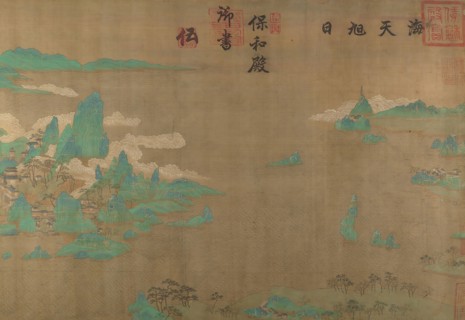 海天旭日
保和殿
御書
伍